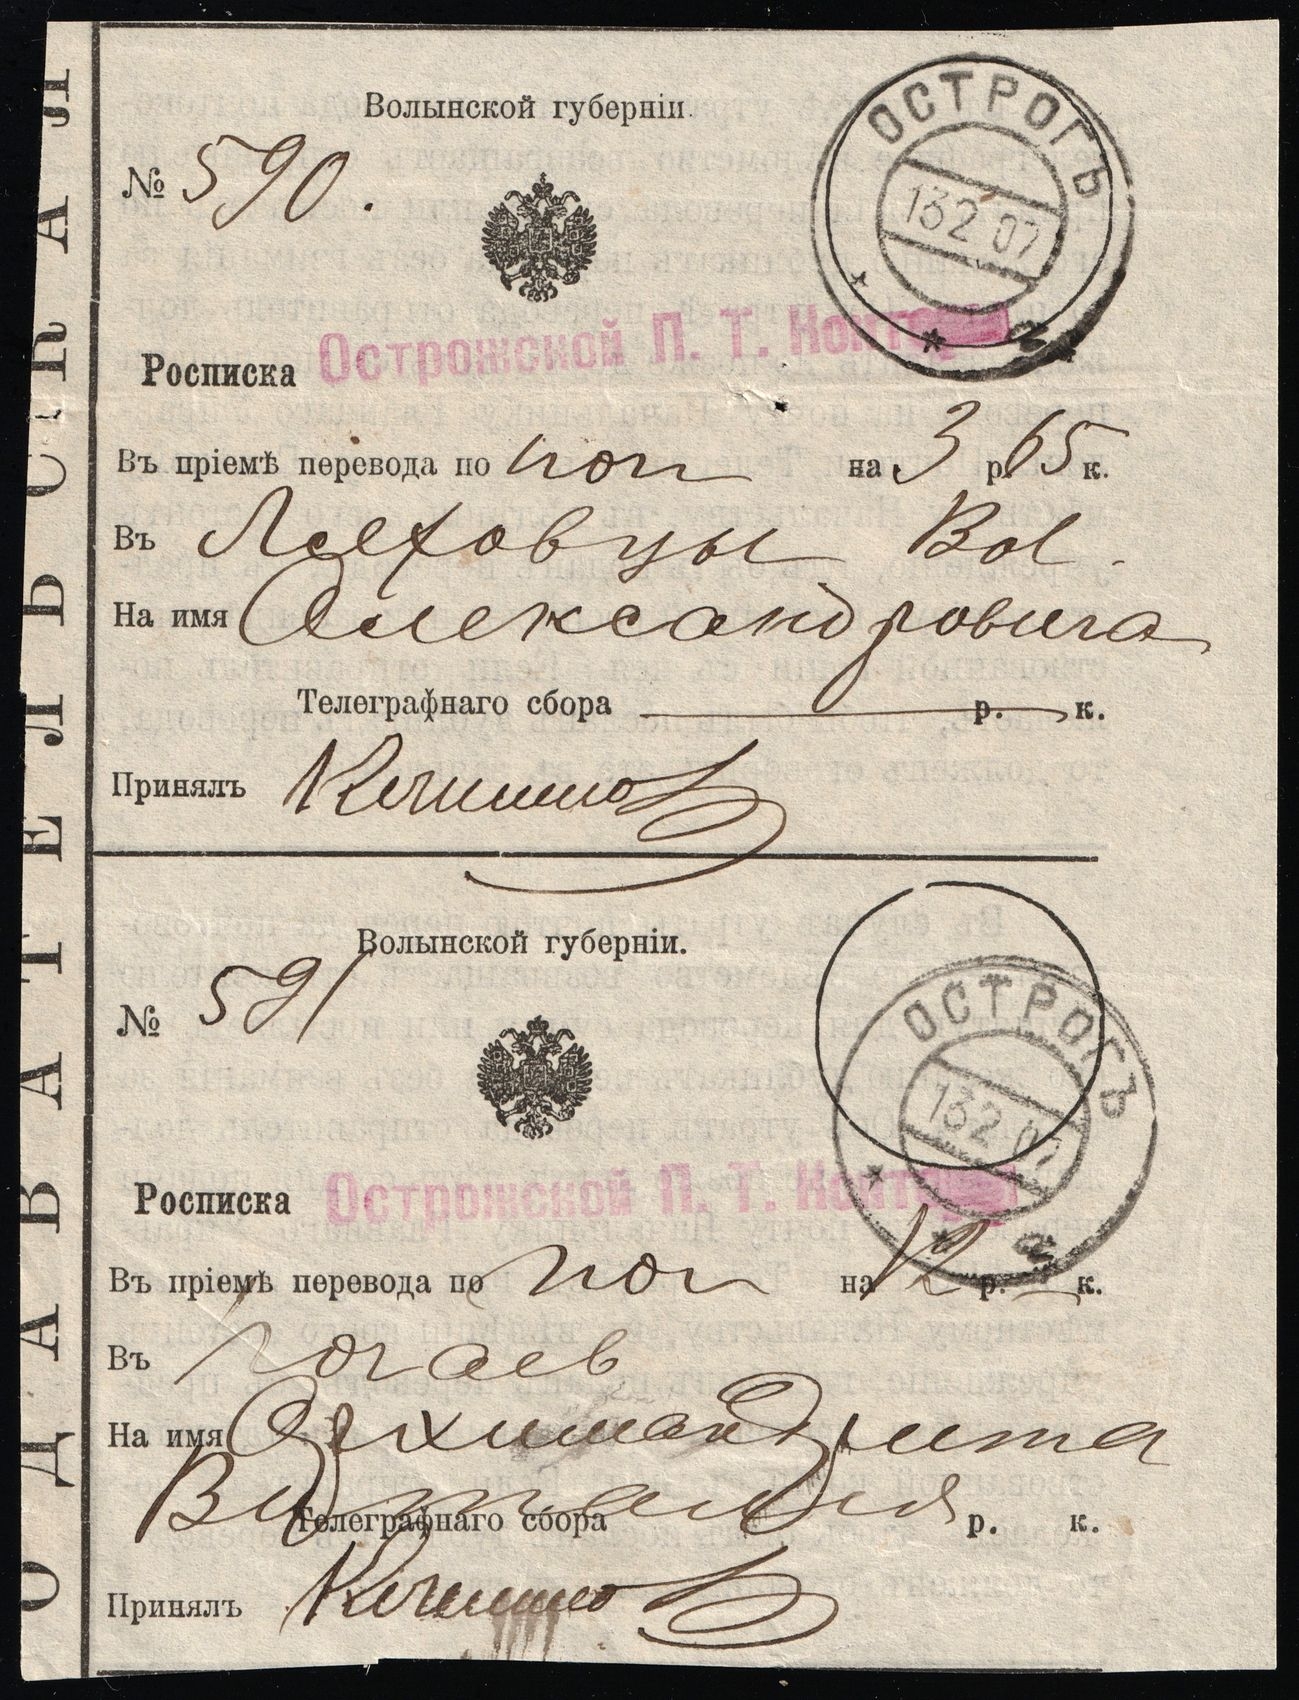 Волынской губерніи.
ОСТРОГЪ
13 2 07
а
№ 590.
Острожской П. Т. Конторы
Росписка
Въ пріемѣ перевода по поч на 3 р. 65 к.
Въ Ляховцы Вол.
На имя Александровича
Телеграфнаго сбора — р. к.
Принялъ
Волынской губерніи.
ОСТРОГЪ
13 2 07
а
№ 591
Острожской П. Т. Конторы
Росписка
Въ пріемѣ перевода по поч на 12 р. — к.
Въ Почаев
На имя Архимандрита
Виталия
Телеграфнаго сбора р. к.
Принялъ
ОДАВАТЕЛЬ